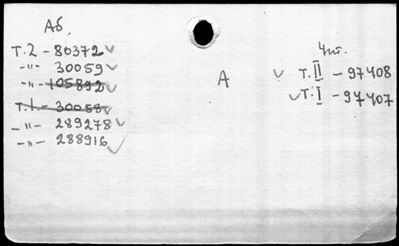 Аб.
Т.2 - 80372 ✓
-"- 30059 ✓
-"- 105892 ✓
Т.1 - 30058
-"- 289278 ✓
-"- 288916 ✓
А
Чит.
✓ Т. II - 97408
✓ Т. I - 97407